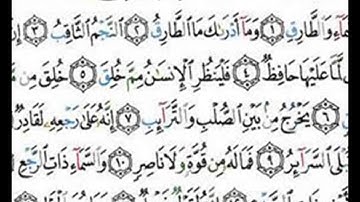 ـمَآءِ وَٱلطَّارِقِ ۝١ وَمَآ أَدۡرَىٰكَ مَا ٱلطَّارِقُ ۝٢ ٱلنَّجۡمُ ٱلثَّاقِبُ ۝٣ إِن
لَّمَّا عَلَيۡهَا حَافِظٞ ۝٤ فَلۡيَنظُرِ ٱلۡإِنسَٰنُ مِمَّ خُلِقَ ۝٥ خُلِقَ مِن
۝٦ يَخۡرُجُ مِنۢ بَيۡنِ ٱلصُّلۡبِ وَٱلتَّرَآئِبِ ۝٧ إِنَّهُۥ عَلَىٰ رَجۡعِهِۦ لَقَادِرٞ
ـلَى ٱلسَّرَآئِرُ ۝٩ فَمَا لَهُۥ مِن قُوَّةٖ وَلَا نَاصِرٖ ۝١٠ وَٱلسَّمَآءِ ذَاتِ ٱلرَّجۡعِ